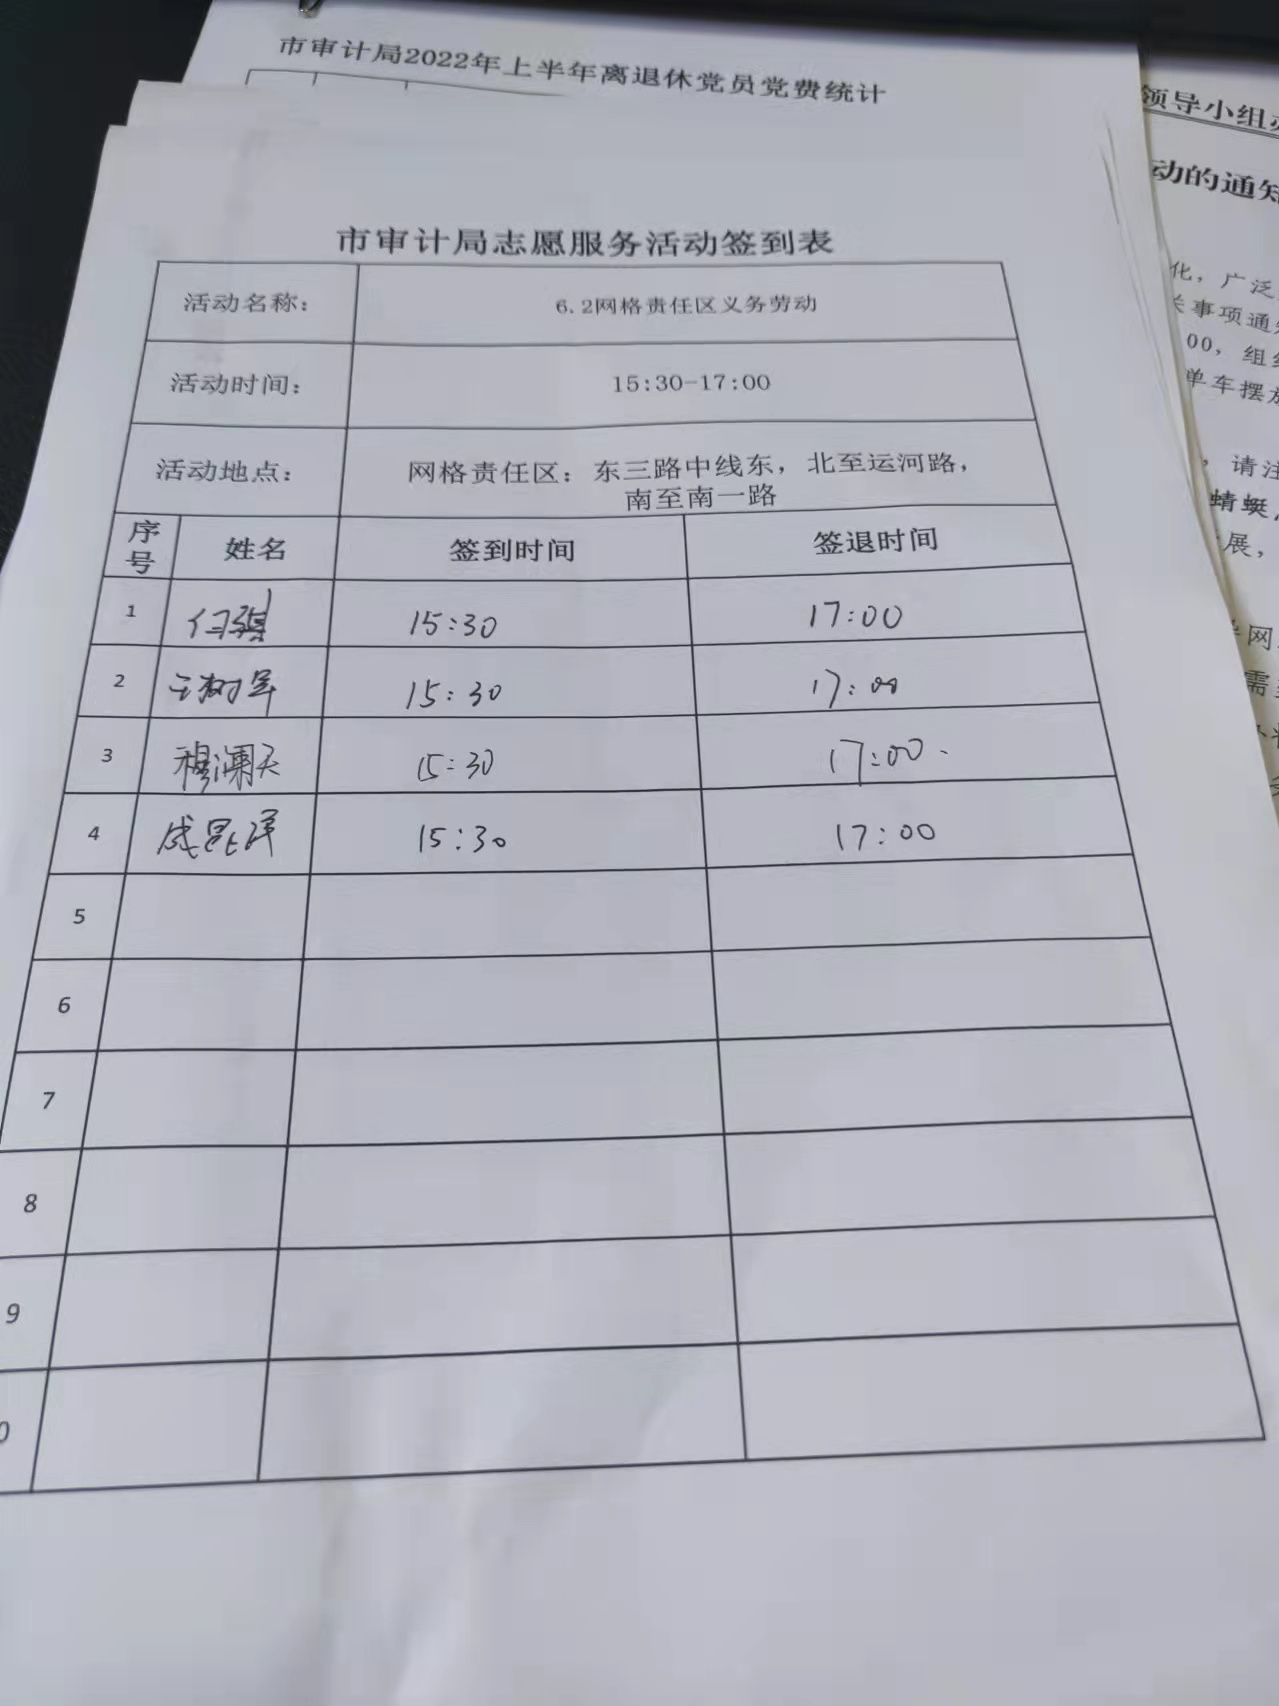 市审计局2022年上半年离退休党员党费统计
领导小组
动的通知
化，广泛
关事项通知
00，组织
单车摆放
，请注
蜻蜓
展，
网
需
市审计局志愿服务活动签到表
活动名称： 6.2网格责任区义务劳动
活动时间： 15:30-17:00
活动地点： 网格责任区：东三路中线东，北至运河路，
南至南一路
序号 姓名 签到时间 签退时间
1 15:30 17:00
2 王树军 15:30 17:00
3 穆澜天 15:30 17:00.
4 成昆洋 15:30 17:00
5
6
7
8
9
0